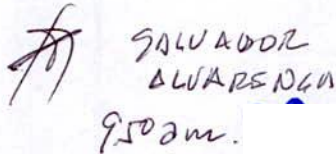 SALVADOR
ALVARENGA
950 am.